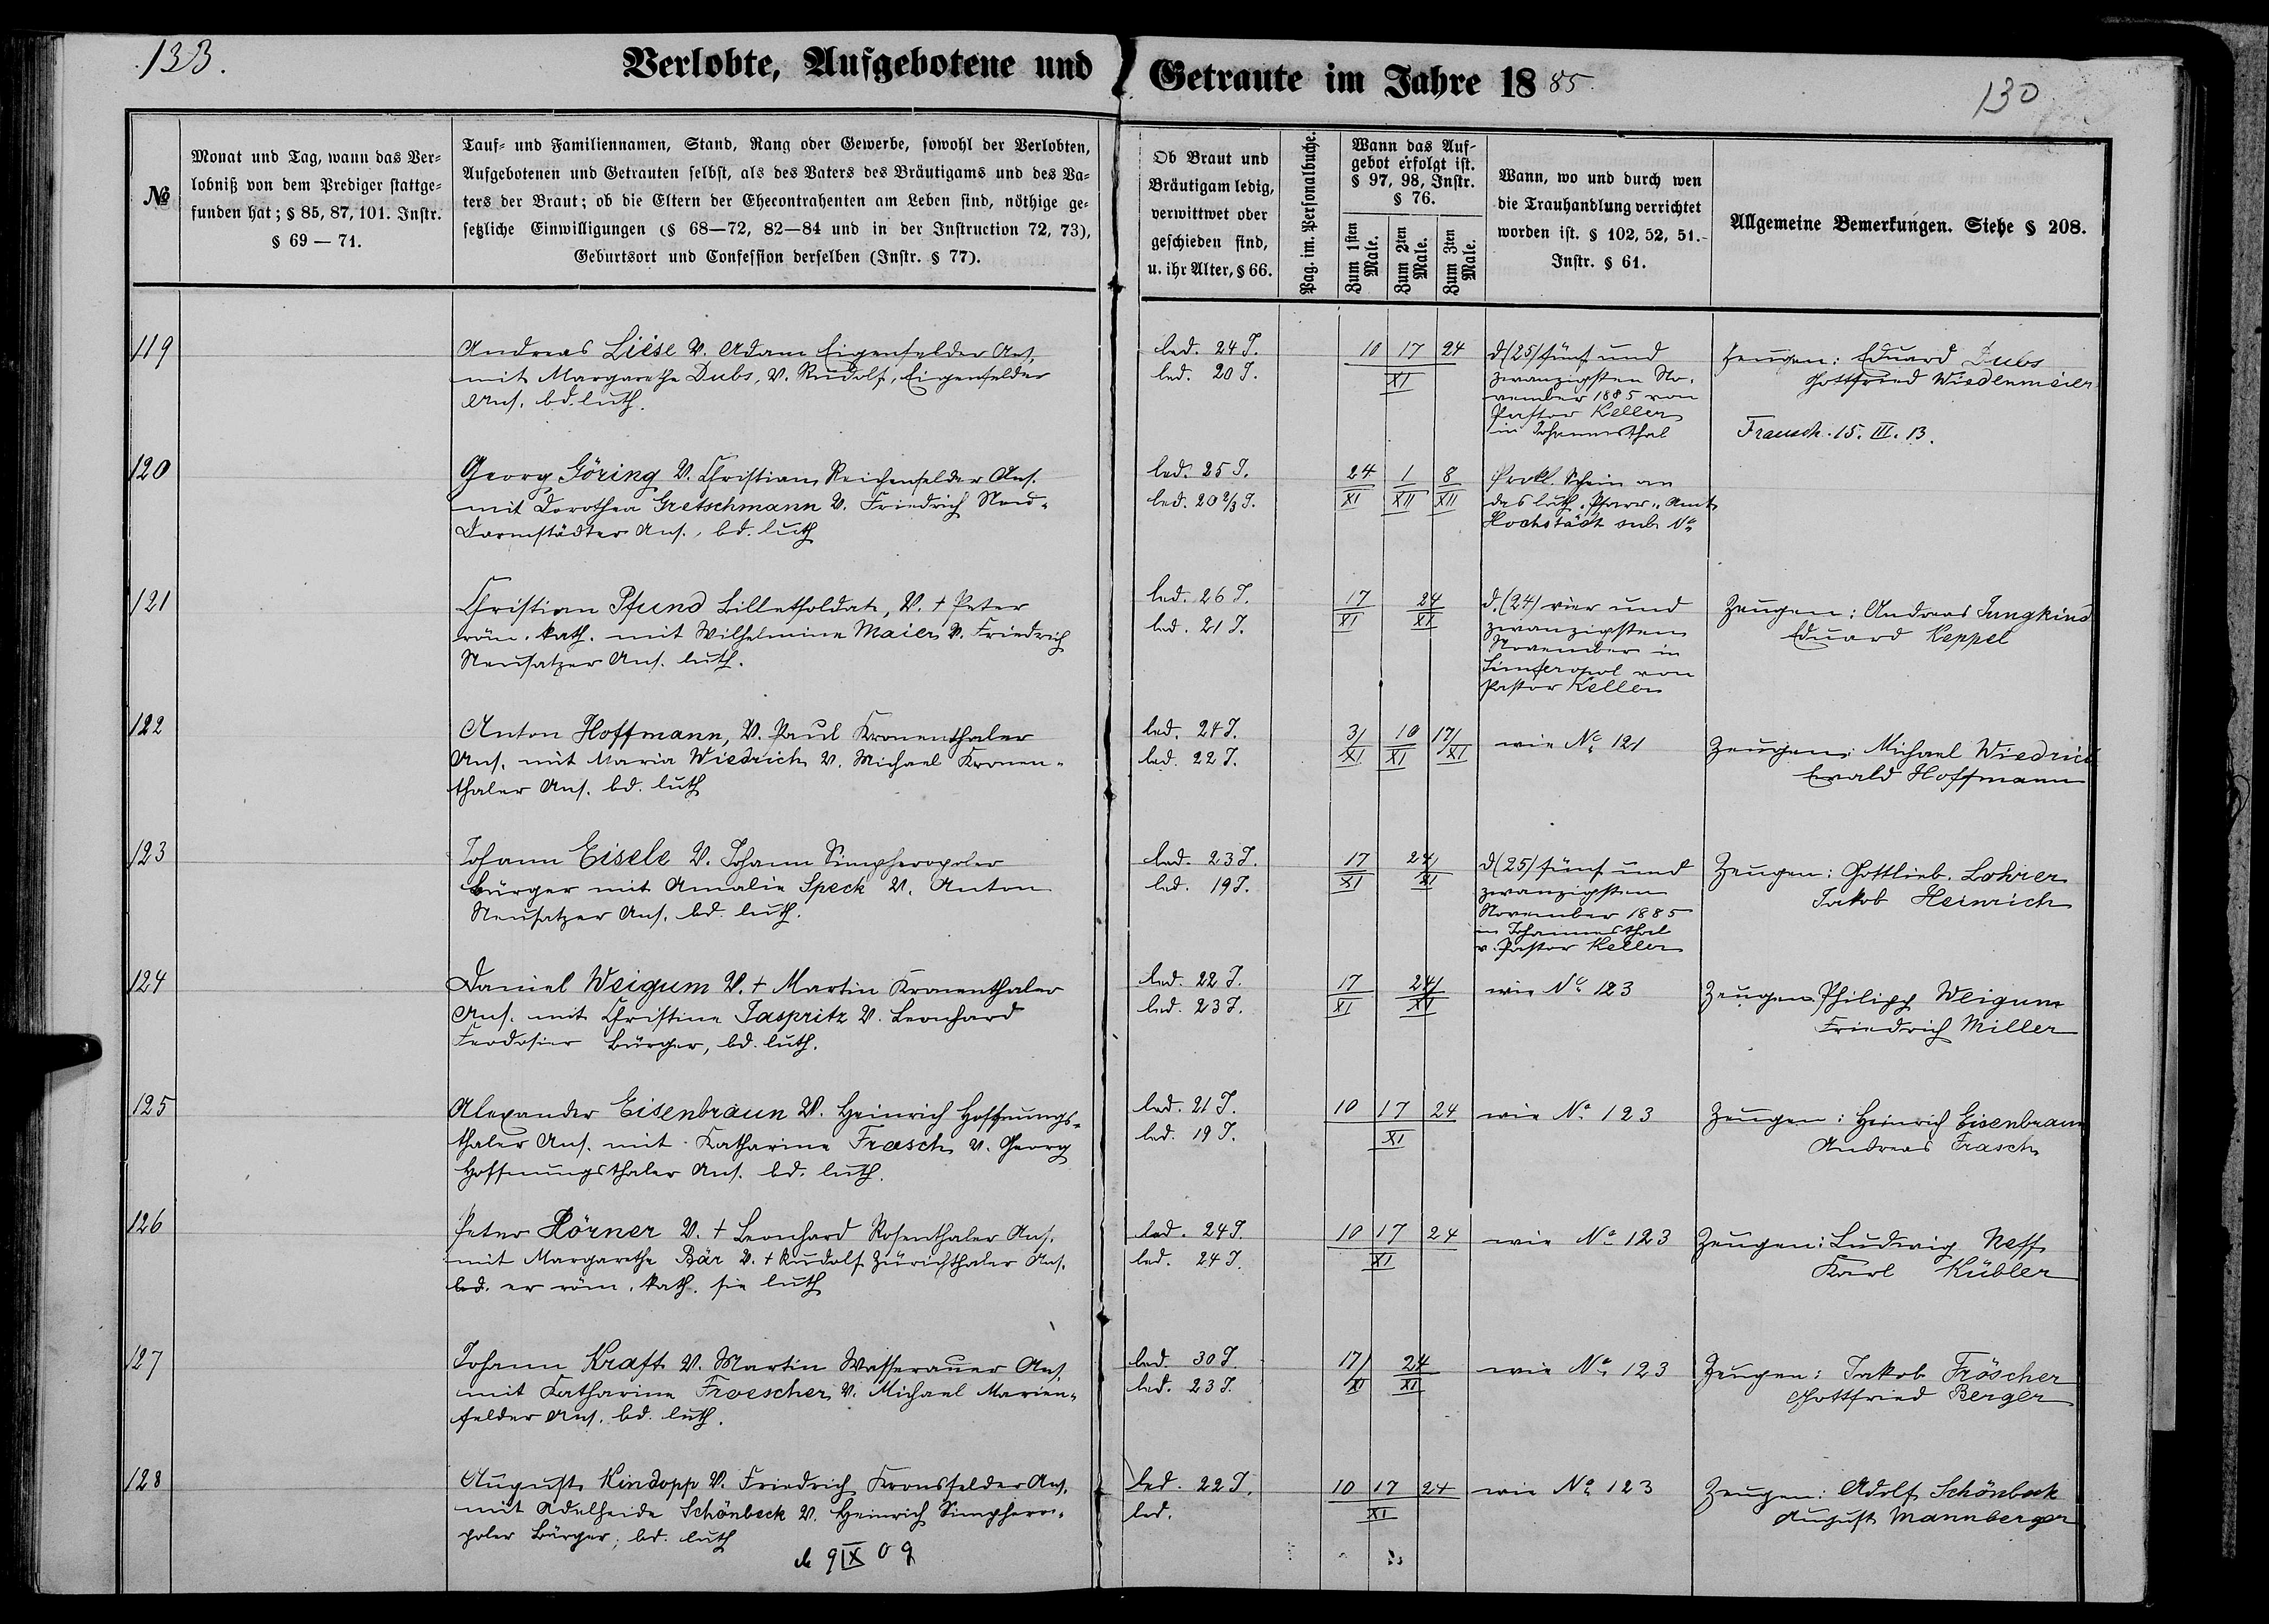 133.
Verlobte, Aufgebotene und Getraute im Jahre 1885.
130
№
Monat und Tag, wann das Ver-
lobniß von dem Prediger stattge-
funden hat; § 85, 87, 101. Instr.
§ 69 — 71.
Tauf- und Familiennamen, Stand, Rang oder Gewerbe, sowohl der Verlobten,
Aufgebotenen und Getrauten selbst, als des Vaters des Bräutigams und des Va-
ters der Braut; ob die Eltern der Ehecontrahenten am Leben sind, nöthige ge-
setzliche Einwilligungen (§ 68—72, 82—84 und in der Instruction 72, 73),
Geburtsort und Confession derselben (Instr. § 77).
Ob Braut und
Bräutigam ledig,
verwittwet oder
geschieden sind,
u. ihr Alter, § 66.
Pag. im. Personalbuche.
Wann das Auf-
gebot erfolgt ist.
§ 97, 98, Instr.
§ 76.
Zum 1sten
Male.
Zum 2ten
Male.
Zum 3ten
Male.
Wann, wo und durch wen
die Trauhandlung verrichtet
worden ist. § 102, 52, 51.-
Instr. § 61.
Allgemeine Bemerkungen. Siehe § 208.
119
Andreas Liese V. Adam Eigenfelder Ans.
mit Margarethe Dubs, V. Rudolf, Eigenfelder
Ans. bd. luth.
led. 24 J.
led. 20 J.
10 17 24
XI
d (25) fünf und
zwanzigsten No-
vember 1885 von
Pastor Keller
in Johannesthal
Zeugen: Eduard Dubs
Gottfried Wiedenmeier
Transch. 15. III. 13.
120
Georg Göring V. Christian Reichenfelder Ans.
mit Dorothea Gretschmann V. Friedrich Neu-
Darmstädter Ans., bd. luth
led. 25 J.
led. 20 2/3 J.
24 1 8
XI XII XII
Prokl. Schein an
das luth. Pfarr-Amt
Hochstädt sub No
121
Christian Pfund Billetsoldat, V. + Peter
röm. kath. mit Wilhelmine Maier V. Friedrich
Neusatzer Ans. luth.
led. 26 J.
led. 21 J.
17 24
XI XI
d. (24) vier und
zwanzigsten
November in
Simferopol von
Pastor Keller
Zeugen: Andreas Jungkind
Eduard Keppel
122
Anton Hoffmann, V. Paul Kronenthaler
Ans. mit Maria Wiedrich V. Michael Kronen-
thaler Ans. bd. luth
led. 24 J.
led. 22 J.
3/ 10 17/
XI XI XI
wie No 121
Zeugen: Michael Wiedrich
Ewald Hoffmann
123
Johann Eisele V. Johann Simpheropoler
Bürger mit Amalie Speck V. Anton
Neusatzer Ans. bd. luth.
led. 23 J.
led. 19 J.
17 24/
XI XI
d (25) fünf und
zwanzigsten
November 1885
in Johannesthal
v. Pastor Keller
Zeugen: Gottlieb Lohrer
Jakob Heinrich
124
Daniel Weigum V. + Martin Kronenthaler
Ans. mit Christine Jaspritz V. Leonhard
Feodosier Bürger, bd. luth.
led. 22 J.
led. 23 J.
17 24/
XI XI
wie No 123
Zeugen Philipp Weigum
Friedrich Miller
125
Alexander Eisenbraun V. Heinrich Hoffnungs-
thaler Ans. mit Katharina Frasch V. Georg
Hoffnungsthaler Ans. bd. luth.
led. 21 J.
led. 19 J.
10 17 24
XI
wie No 123
Zeugen: Heinrich Eisenbraun
Andreas Frasch
126
Peter Hörner V. + Leonhard Rosenthaler Ans.
mit Margarethe Bär V. + Rudolf Zürichthaler Ans.
bd. er röm. kath. sie luth
led. 24 J.
led. 24 J.
10 17 24
XI
wie No 123
Zeugen: Ludwig Neff
Karl Kübler
127
Johann Kraft V. Martin Wasserauer Ans.
mit Katharina Froescher V. Michael Marien-
felder Ans. bd. luth.
led. 30 J.
led. 23 J.
17/ 24
XI XI
wie No 123
Zeugen: Jakob Fröscher
Gottfried Berger
128
August Kindopp V. Friedrich Kronsfelder Ans.
mit Adelheide Schönbeck V. Heinrich Simphero-
poler Bürger; bd. luth
led. 22 J.
led.
10 17 24
XI
wie No 123
Zeugen: Adolf Schönbeck
August Mannberger
9 IX 09